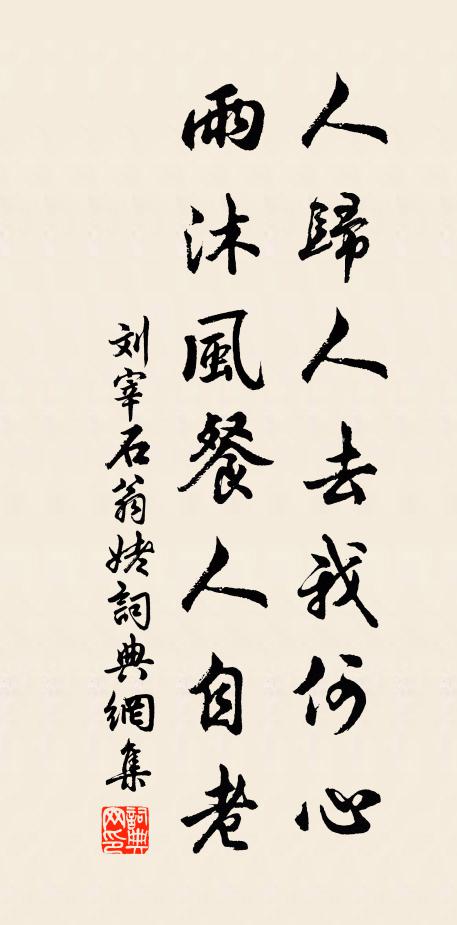 人歸人去我何心
雨沐風餐人自老
刘宰石翁姥詞典網集
詞典
网印